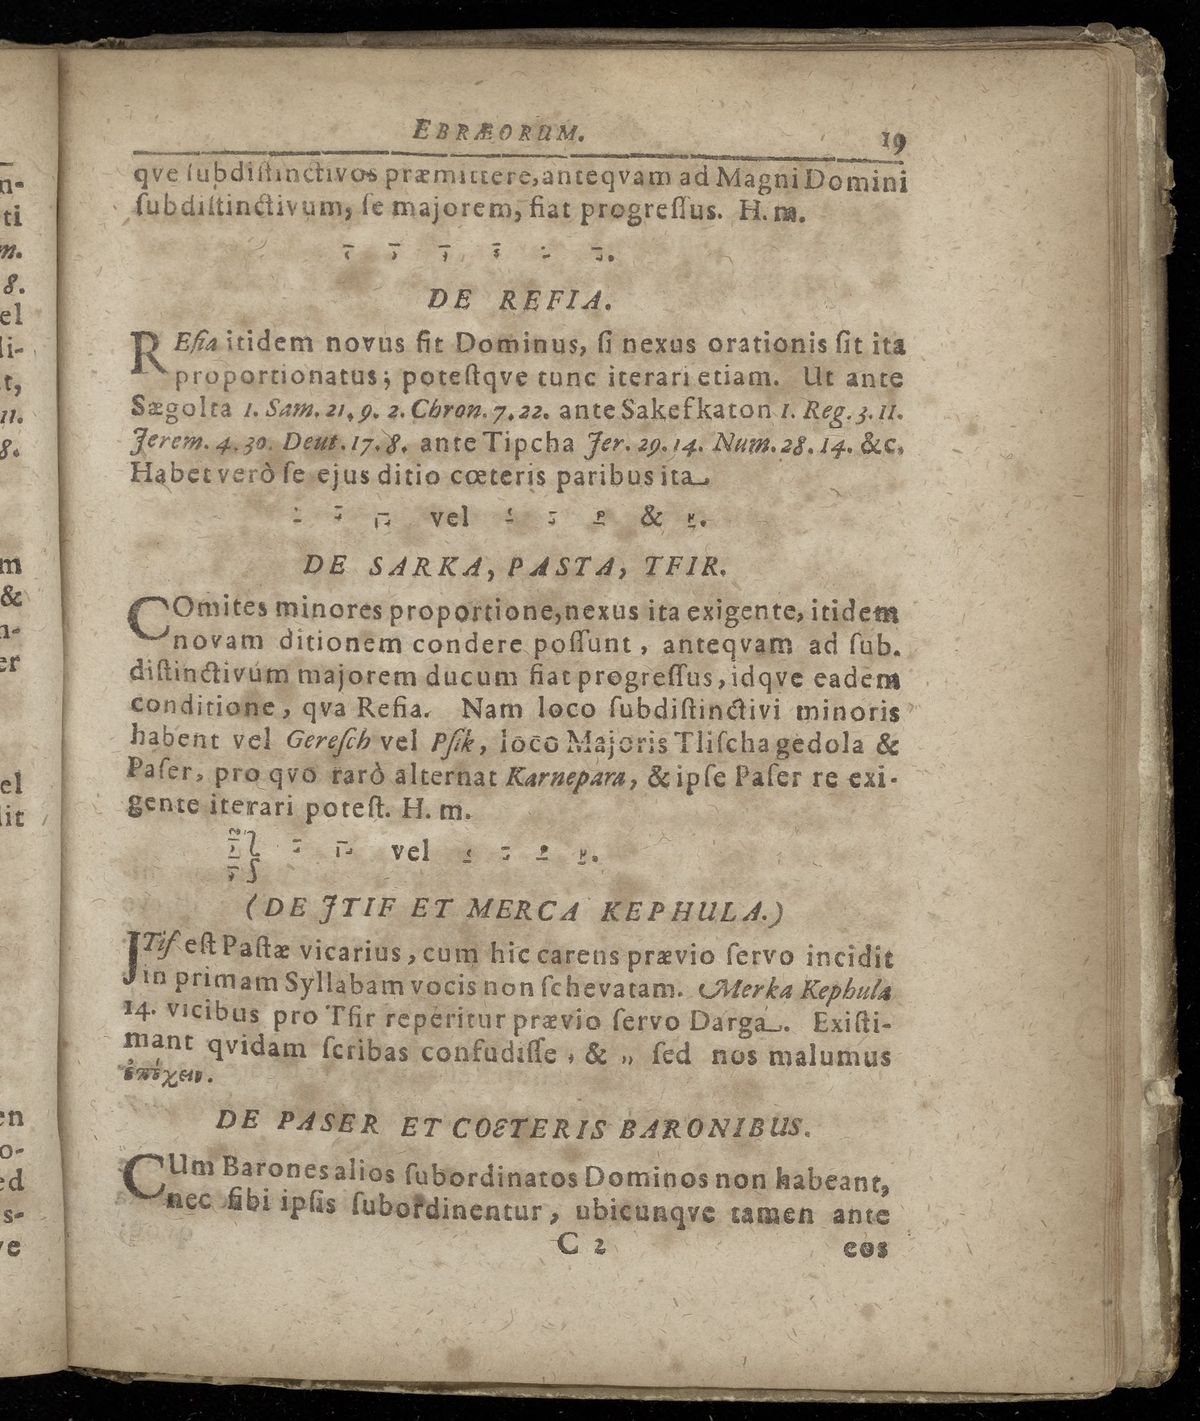 EBRÆORUM. 19
qve ſubdiſtinctivos præmittere, anteqvam ad Magni Domini
ſubdiſtinctivum, ſe majorem, fiat progreſſus. H. m.
DE REFIA.
REfia itidem novus fit Dominus, ſi nexus orationis ſit ita
proportionatus; poteſtqve tunc iterari etiam. Ut ante
Sægolta 1. Sam. 21. 9. 2. Chron. 7. 22. ante Sakefkaton 1. Reg. 3. 11.
Jerem. 4. 30. Deut. 17. 8. ante Tipcha Jer. 29. 14. Num. 28. 14. &c.
Habet verò ſe ejus ditio cœteris paribus ita
vel &
DE SARKA, PASTA, TFIR.
COmites minores proportione, nexus ita exigente, itidem
novam ditionem condere poſſunt, anteqvam ad ſub.
diſtinctivum majorem ducum fiat progreſſus, idqve eadem
conditione, qva Refia. Nam loco ſubdiſtinctivi minoris
habent vel Gereſch vel Pſik, loco Majoris Tliſcha gedola &
Paſer, pro qvo rarò alternat Karnepara, & ipſe Paſer re exi-
gente iterari poteſt. H. m.
vel
(DE JTIF ET MERCA KEPHULA.)
JTif eſt Paſtæ vicarius, cum hic carens prævio ſervo incidit
in primam Syllabam vocis non ſchevatam. Merka Kephula
14. vicibus pro Tfir reperitur prævio ſervo Darga. Exiſti-
mant qvidam ſcribas confudiſſe , & ,, ſed nos malumus
ἐπέχειν.
DE PASER ET COETERIS BARONIBUS.
CUm Barones alios ſubordinatos Dominos non habeant,
nec ſibi ipſis ſubordinentur, ubicunqve tamen ante
C 2 eos